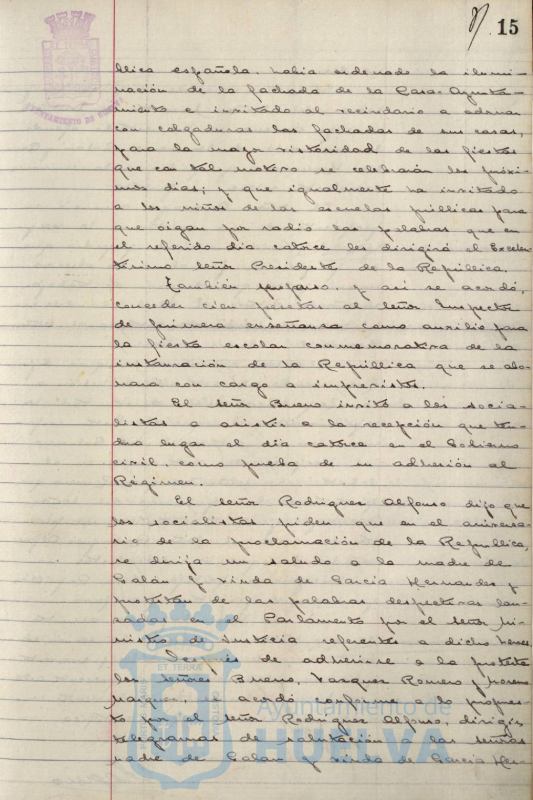 15
blica española, había ordenado la ilumi-
nación de la fachada de la Casa-Ayunta-
miento e invitado al vecindario a adornar
con colgaduras las fachadas de sus casas,
para la mayor vistosidad de las fiestas
que con tal motivo se celebrarán los próxi-
mos días; y que igualmente ha invitado
a los niños de las escuelas públicas para
que oigan por radio las palabras que en
el referido día catorce les dirigirá el Excelen-
tísimo señor Presidente de la República.
También propuso, y así se acordó,
conceder cien pesetas al señor Inspector
de primera enseñanza como auxilio para
la fiesta escolar conmemorativa de la
instauración de la República que se abo-
nará con cargo a imprevistos.
El señor Bueno invitó a los socia-
listas a asistir a la recepción que ten-
drá lugar el día catorce en el Gobierno
civil, como prueba de su adhesión al
Régimen.
El señor Rodríguez Alfonso dijo que
los socialistas piden que en el aniversa-
rio de la proclamación de la República,
se dirija un saludo a la madre de
Galán y viuda de García Hernandez y
protestan de las palabras despectivas lan-
zadas en el Parlamento por el señor Mi-
nistro de Justicia referentes a dichos héroes.
Después de adherirse a la protesta
los señores Bueno, Vazquez Romero y Moreno
Marquez, se acordó conforme a lo propues-
to por el señor Rodríguez Alfonso, dirigir
telegramas de salutación a las señoras
madre de Galán y viuda de García Her-
AYUNTAMIENTO DE HUELVA
ET TERRÆ
Ayuntamiento de
HUELVA